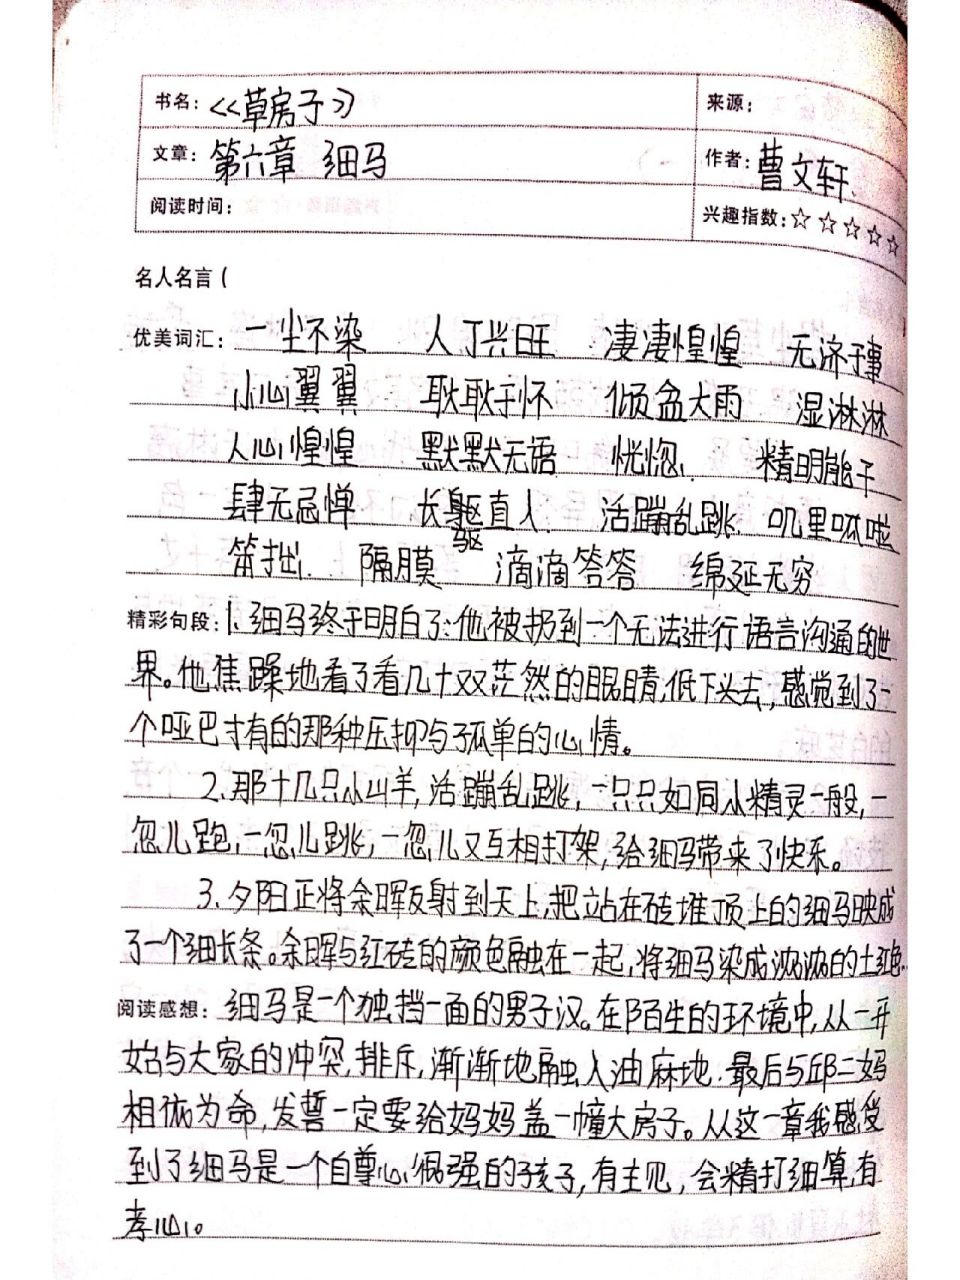 书名：《草房子》 来源：
文章：第六章 细马 作者：曹文轩
阅读时间： 兴趣指数：☆☆☆☆☆
名人名言（
优美词汇：一尘不染 人丁兴旺 凄凄惶惶 无济于事
小心翼翼 耿耿于怀 倾盆大雨 湿淋淋
人心惶惶 默默无语 恍惚 精明能干
肆无忌惮 长驱直入 活蹦乱跳 叽里呱啦
驱
笨拙 隔膜 滴滴答答 绵延无穷
精彩句段：1.细马终于明白了：他被扔到一个无法进行语言沟通的世
界。他焦躁地看了看几十双茫然的眼睛，低下头去，感觉到了一
个哑巴才有的那种压抑与孤单的心情。
2.那十几只小山羊，活蹦乱跳，一只只如同小精灵一般，一
忽儿跑，一忽儿跳，一忽儿又互相打架，给细马带来了快乐。
3.夕阳正将余晖反射到天上，把站在砖堆顶上的细马映成
了一个细长条。余晖与红砖的颜色融在一起，将细马染成浓浓的土红色。
阅读感想：细马是一个独挡一面的男子汉。在陌生的环境中，从一开
始与大家的冲突，排斥，渐渐地融入油麻地．最后与邱二妈
相依为命，发誓一定要给妈妈盖一幢大房子。从这一章我感受
到了细马是一个自尊心倔强的孩子，有主见，会精打细算，有
孝心。